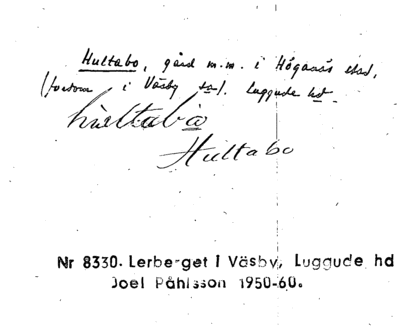 Hultabo, gård m.m. i Höganäs stad,
(fordom i Väsby sn). Luggude hd.
hultabo
Hultabo
Nr 8330. Lerberget i Väsby, Luggude hd
Joel Påhlsson 1950-60.